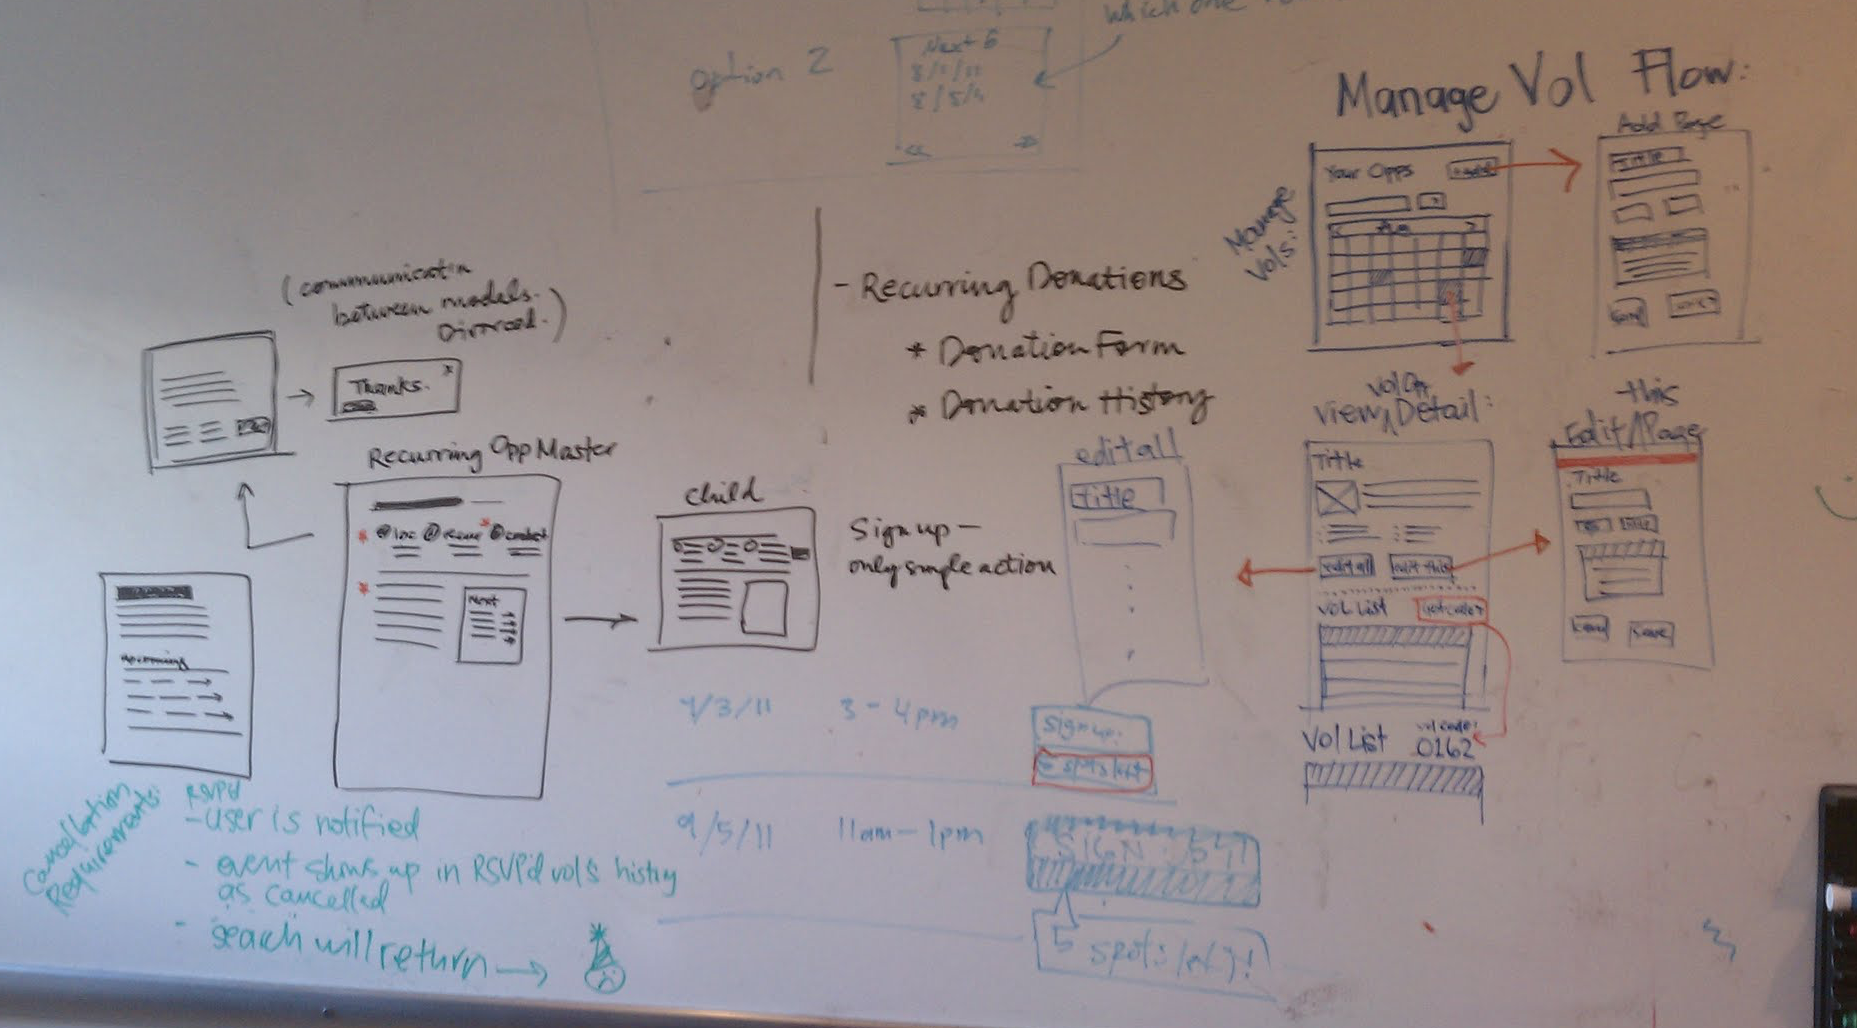 which one
option 2
Next 5
Manage Vol Flow:
Add Page
Your Opps
+add
Title
Manage
Vols:
(communicatin
between modals.
Divorced.)
Thanks.
x
- Recurring Donations
* Donation Form
* Donation History
Recurring Opp Master
Next
Child
Sign up -
only single action
edit all
Title
Vol Opp
View Detail:
Title
edit all
edit this
Vol List
get code
Vol List
vol code:
0162
this
Edit Page
Title
Save
upcoming
7/3/11
3 - 4pm
sign up.
5 spots left
9/5/11
11am - 1pm
SIGN
5 spots left!
Cancellation
Requirements:
RSVPd
- user is notified
- event shows up in RSVP'd vol's histry
as cancelled
- seach will return →